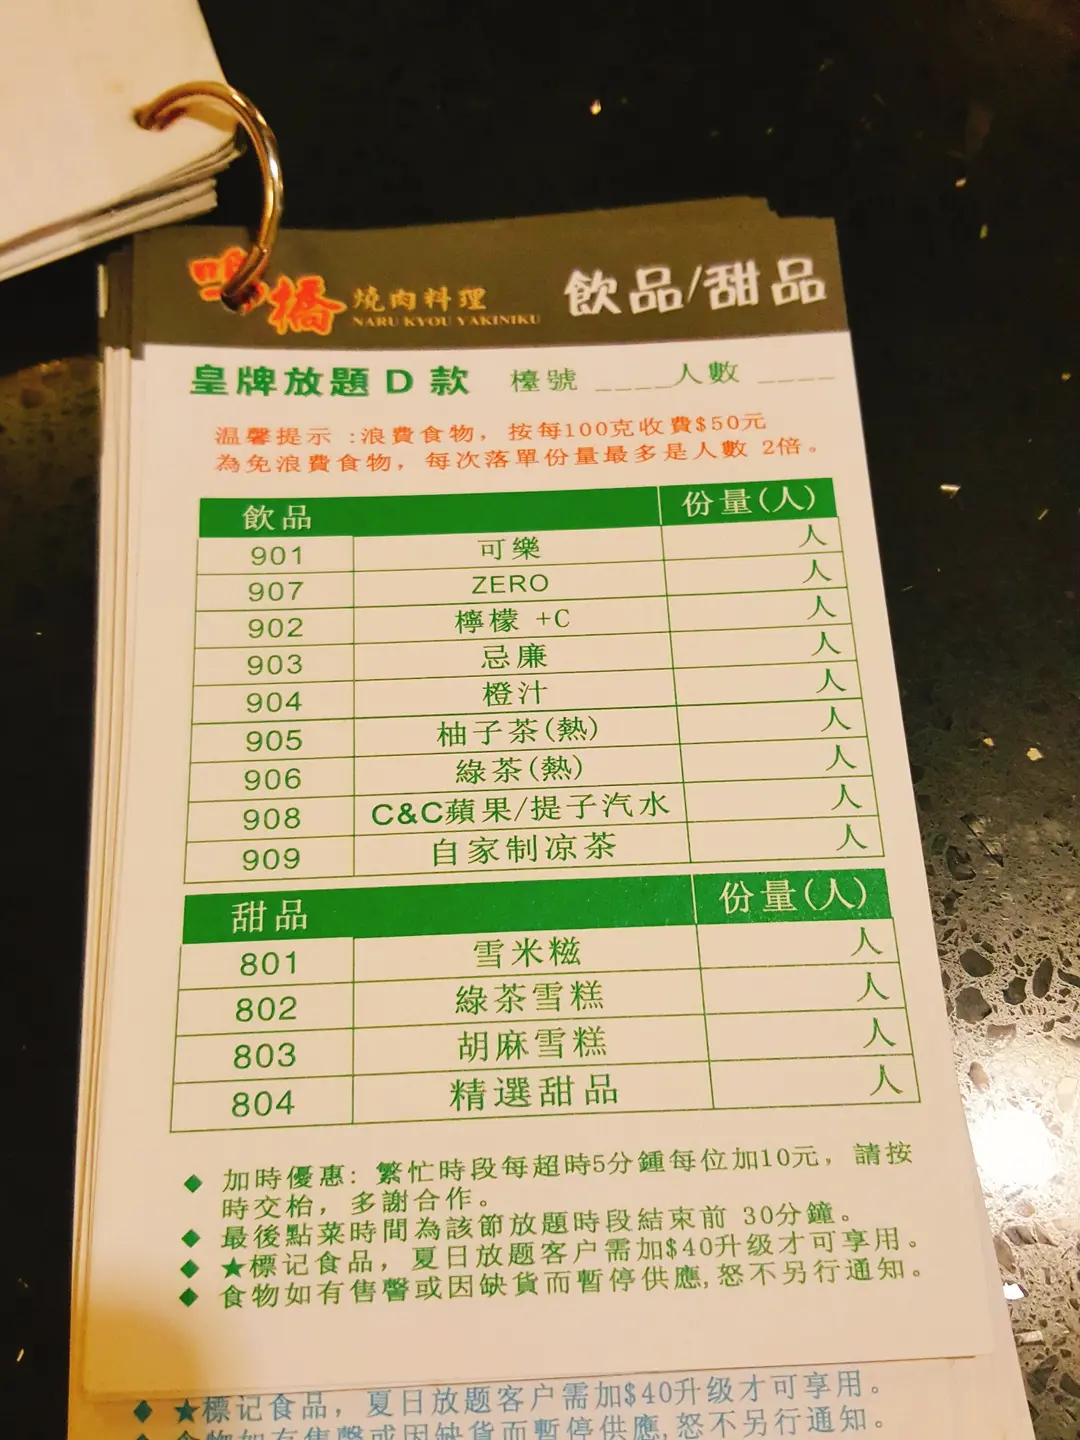 鳴橋 燒肉料理
NARU KYOU YAKINIKU
飲品/甜品
皇牌放題 D 款 檯號 ____人數 ____
温馨提示 :浪費食物，按每100克收費$50元
為免浪費食物，每次落單份量最多是人數 2倍。
飲品 份量(人)
901 可樂 人
907 ZERO 人
902 檸檬 +C 人
903 忌廉 人
904 橙汁 人
905 柚子茶(熱) 人
906 綠茶(熱) 人
908 C&C蘋果/提子汽水 人
909 自家制凉茶 人
甜品 份量(人)
801 雪米糍 人
802 綠茶雪糕 人
803 胡麻雪糕 人
804 精選甜品 人
◆ 加時優惠: 繁忙時段每超時5分鍾每位加10元，請按
時交枱，多謝合作。
◆ 最後點菜時間為該節放題時段結束前 30分鐘。
◆ ★標记食品，夏日放题客户需加$40升级才可享用。
◆ 食物如有售罄或因缺貨而暫停供應,怒不另行通知。
◆ ★標记食品，夏日放题客户需加$40升级才可享用。
◆ 食物如有售罄或因缺貨而暫停供應,怒不另行通知。